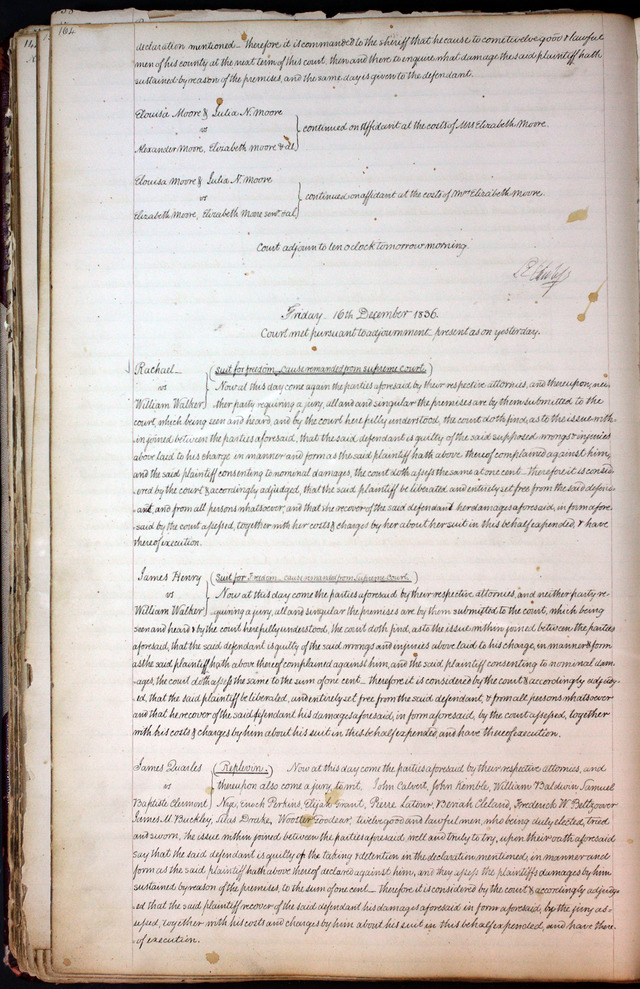 164
declaration mentioned – therefore it is commanded to the sheriff that he cause to come twelve good & lawful
men of his county at the next term of this court, then and there to enquire what damage the said plaintiff hath
sustained by reason of the premises, and the same day is given to the defendant.
Elouisa Moore & Julia N. Moore
vs
continued on affidavit at the costs of Mrs Elizabeth Moore.
Alexander Moore, Elizabeth Moore & al
Elouisa Moore & Julia N. Moore
vs
continued on affidant at the costs of Mrs Elizabeth Moore
Elizabeth Moore, Elizabeth Moore senr. & al.
Court adjourn to ten o clock tomorrow morning.
Friday 16th December 1836.
Court met pursuant to adjournment present as on yesterday.
Rachael (Suit for freedom – cause remanded from Supreme Court.)
vs Now at this day come again the parties aforesaid by their respective attornies, and thereupon, nei-
William Walker ther party requiring a jury, all and singular the premises are by them submitted to the
court, which being seen and heard, and by the court here fully understood, the court doth find, as to the issue with-
in joined between the parties aforesaid, that the said defendant is guilty of the said supposed wrongs & injuries
above laid to his charge in manner and form as the said plaintiff hath above thereof complained against him,
and the said plaintiff consenting to nominal damages, the court doth assess the same at one cent – therefore it is consid-
ered by the court & accordingly adjudged, that the said plaintiff be liberated and entirely set free from the said defend-
ant, and from all persons whatsoever, and that she recover of the said defendant her damages aforesaid, in form afore-
said by the court assessed, together with her costs & charges by her about her suit in this behalf expended & have
thereof execution.
James Henry (Suit for Freedom – cause remanded from Supreme Court.)
vs Now at this day come the parties aforesaid by their respective attornies, and neither party re-
William Walker quiring a jury, all and singular the premises are by them submitted to the court, which being
seen and heard & by the court here fully understood, the court doth find, as to the issue within joined between the parties
aforesaid, that the said defendant is guilty of the said wrongs and injuries above laid to his charge, in manner & form
as the said plaintiff hath above thereof complained against him, and the said plaintiff consenting to nominal dam-
ages, the court doth assess the same to the sum of one cent – therefore it is considered by the court & accordingly adjudg-
ed, that the said plaintiff be liberated, and entirely set free from the said defendant, & from all persons whatsoever
and that he recover of the said defendant his damages aforesaid, in form aforesaid, by the court assessed, together
with his costs & charges by him about his suit in this behalf expended, and have thereof execution.
James Quarles (Replevin.) Now at this day come the parties aforesaid by their respective attornies, and
vs thereupon also come a jury, to wit, John Calvert, John Kemble, William Baldwin, Samuel
Baptiste Clermont Nye, Enoch Perkins, Elijah Grant, Pierre Latour, Beriah Cleland, Frederick W. Beltzover
James M Buckley, Silas Drake, Wooster Goodsear, twelve good and lawful men, who being duly elected, tried
and sworn, the issue within joined between the parties aforesaid well and truly to try, upon their oath aforesaid
say that the said defendant is guilty of the taking & detention in the declaration mentioned, in manner and
form as the said plaintiff hath above thereof declared against him, and they assess the plaintiffs damages by him
sustained by reason of the premises, to the sum of one cent – therefore it is considered by the court & accordingly adjudg-
ed that the said plaintiff recover of the said defendant his damages aforesaid in form aforesaid, by the jury as-
sessed, together with his costs and charges by him about his suit in this behalf expended, and have there-
of execution.